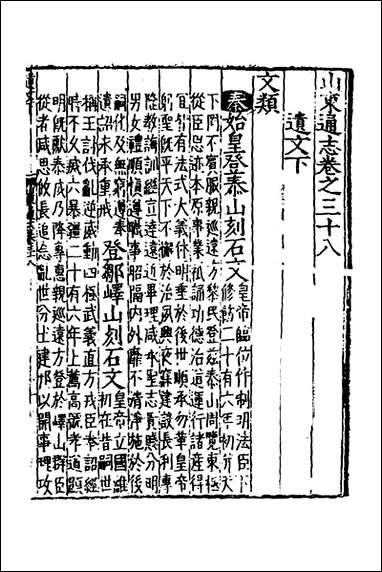 山東通志卷之三十八
遺文下
文類
秦始皇登泰山刻石文
皇帝臨位作制明法臣下
修飭二十有六年初并天
下罔不賓服親巡遠方黎民登茲泰山周覽東極
從臣思迹本原事業祗誦功德治道運行諸產得
宜皆有法式大義休明垂於後世順承勿革皇帝
躬聖既平天下不懈於治夙興夜寐建設長利專
隆教誨訓經宣達遠近畢理咸承聖志貴賤分明
男女禮順慎遵職事昭隔內外靡不清淨施於後
嗣化及無窮遵奉
遺詔永承重戒
登鄒嶧山刻石文
皇帝立國維
初在昔嗣世
稱王討伐亂逆威動四極武義直方戎臣奉詔經
時不久滅六暴強二十有六年上薦高號孝道顯
明既獻泰成乃降專惠親巡遠方登於嶧山群臣
從者咸思攸長追念亂世分土建邦以開爭理攻